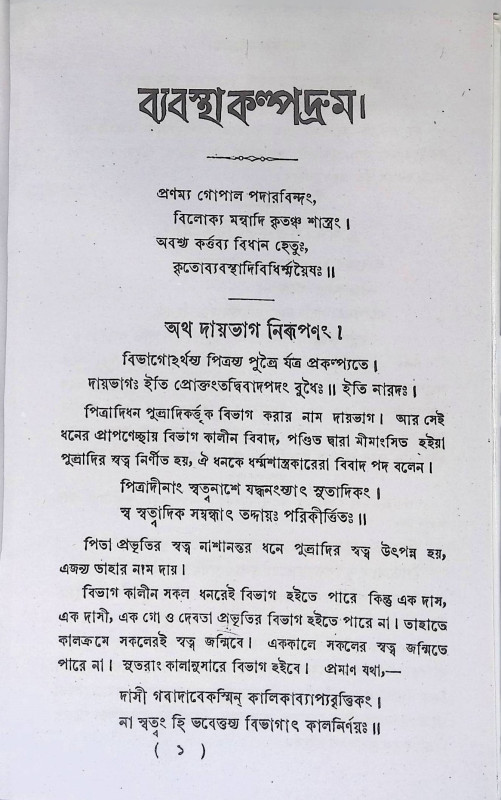 ব্যবস্থাকল্পদ্রুম।
প্রণম্য গোপাল পদারবিন্দং,
বিলোক্য মন্বাদি কৃতঞ্চ শাস্ত্রং।
অবশ্য কর্ত্তব্য বিধান হেতুঃ,
কৃতোব্যবস্থাদিবিধির্ম্ময়ৈষঃ॥
অথ দায়ভাগ নিরূপণং।
বিভাগোঽর্থস্য পিত্রস্য পুত্রৈ র্যত্র প্রকল্প্যতে।
দায়ভাগঃ ইতি প্রোক্তংতদ্বিবাদপদং বুধৈঃ॥ ইতি নারদঃ।
পিত্রাদিধন পুত্রাদিকর্ত্তৃক বিভাগ করার নাম দায়ভাগ। আর সেই
ধনের প্রাপণেচ্ছায় বিভাগ কালীন বিবাদ, পণ্ডিত দ্বারা মীমাংসিত হইয়া
পুত্রাদির স্বত্ব নির্ণীত হয়, ঐ ধনকে ধর্ম্মশাস্ত্রকারেরা বিবাদ পদ বলেন।
পিত্রাদীনাং স্বত্বনাশে যদ্ধনংস্যাৎ সুতাদিকং।
স্ব স্বত্বাদিক সম্বন্ধাৎ তদ্দায়ঃ পরিকীর্ত্তিতঃ॥
পিতা প্রভৃতির স্বত্ব নাশানন্তর ধনে পুত্রাদির স্বত্ব উৎপন্ন হয়,
এজন্য তাহার নাম দায়।
বিভাগ কালীন সকল ধনরেই বিভাগ হইতে পারে কিন্তু এক দাস,
এক দাসী, এক গো ও দেবতা প্রভৃতির বিভাগ হইতে পারে না। তাহাতে
কালক্রমে সকলেরই স্বত্ব জন্মিবে। এককালে সকলের স্বত্ব জন্মিতে
পারে না। সুতরাং কালানুসারে বিভাগ হইবে। প্রমাণ যথা,—
দাসী গবাদাবেকস্মিন্ কালিকাব্যাপ্যবৃত্তিকং।
না স্বত্বং হি ভবেত্তস্য বিভাগাৎ কালনির্ণয়ঃ॥
( ১ )